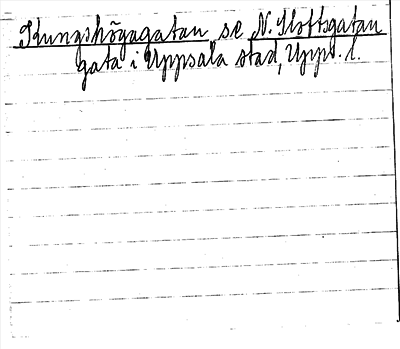 Kungshögagatan se N. Slottsgatan
gata i Uppsala stad, Upps. l.